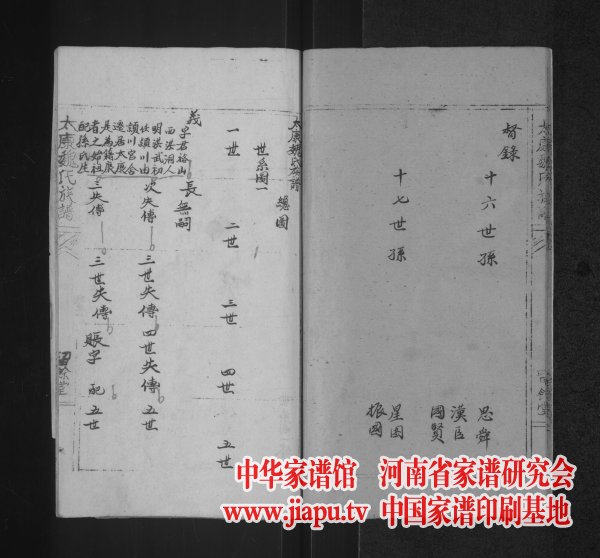 督錄
十六世孫
思舜
漢臣
國賢
十七世孫
星國
振國
太康魏氏族譜
世系圖一
總圖
一世 二世 三世 四世 五世
義
字君裕山
西洪洞人
明洪武初
仕潁川由
潁川宦合
遷居太康
是為籍康
者之始祖
配孫氏生
長 無嗣
次失傳 三世失傳 四世失傳 五世
三失傳 三世失傳 賬字 配 五世
太康魏氏族譜
中华家谱馆 河南省家谱研究会
www.jiapu.tv 中国家谱印刷基地